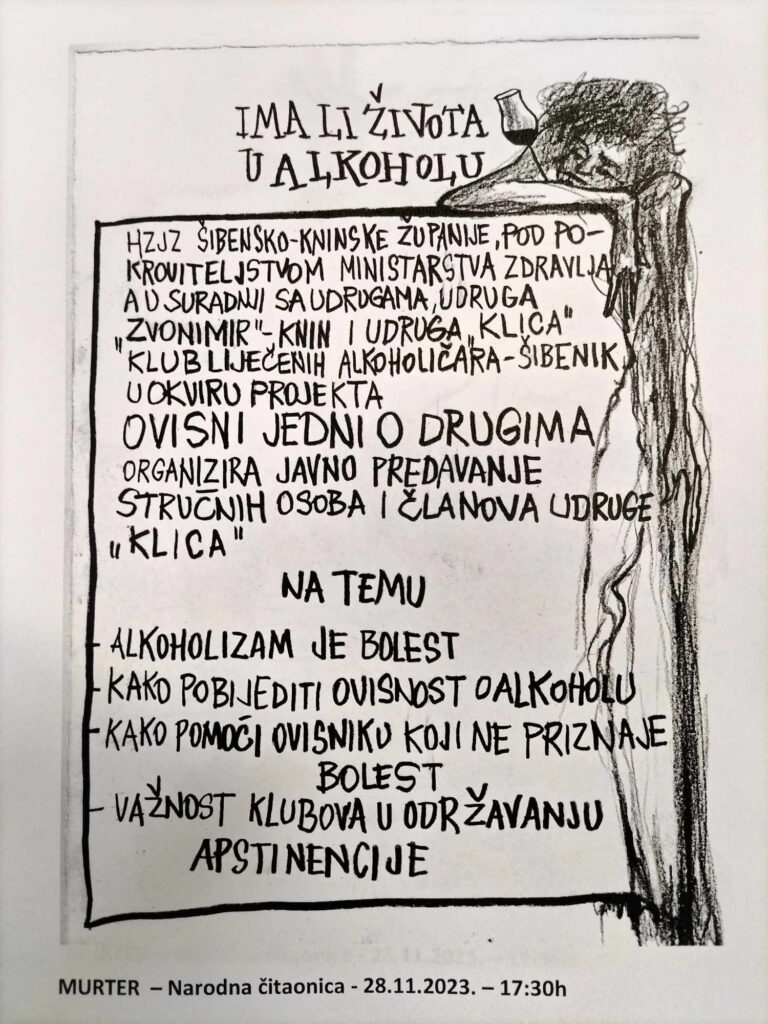 IMA LI ŽIVOTA
U ALKOHOLU
HZJZ ŠIBENSKO-KNINSKE ŽUPANIJE, POD PO-
KROVITELJSTVOM MINISTARSTVA ZDRAVLJA
A U SURADNJI SA UDRUGAMA, UDRUGA
„ZVONIMIR"-KNIN I UDRUGA „KLICA"
"KLUB LIJEČENIH ALKOHOLIČARA-ŠIBENIK,
U OKVIRU PROJEKTA
OVISNI JEDNI O DRUGIMA
ORGANIZIRA JAVNO PREDAVANJE
STRUČNIH OSOBA I ČLANOVA UDRUGE
„KLICA"
NA TEMU
- ALKOHOLIZAM JE BOLEST
- KAKO POBIJEDITI OVISNOST O ALKOHOLU
- KAKO POMOĆI OVISNIKU KOJI NE PRIZNAJE
BOLEST
- VAŽNOST KLUBOVA U ODRŽAVANJU
APSTINENCIJE
MURTER – Narodna čitaonica - 28.11.2023. – 17:30h